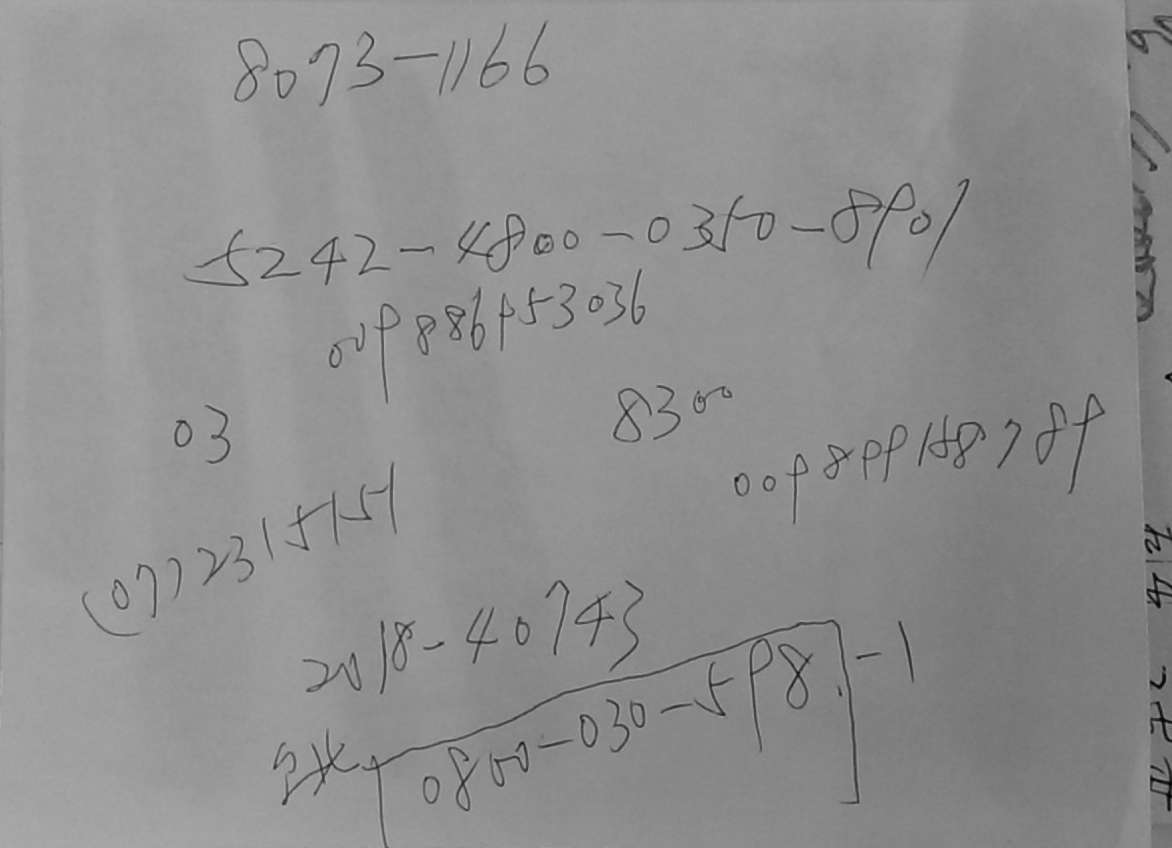 8073-1166
5242-4800-0350-8901
009886953036
03
8300
009899158789
(07)2315151
2018-40743
0800-030-598 -1